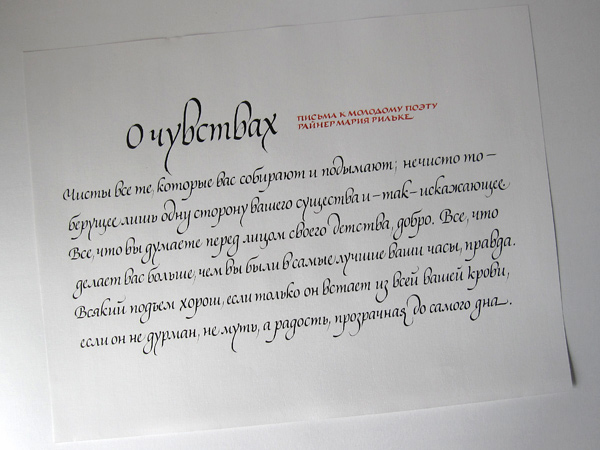 О чувствах
ПИСЬМА К МОЛОДОМУ ПОЭТУ
РАЙНЕР МАРИЯ РИЛЬКЕ
Чисты все те, которые вас собирают и подымают; нечисто то –
берущее лишь одну сторону вашего существа и – так – искажающее
Все, что вы думаете перед лицом своего детства, добро. Все, что
делает вас больше, чем вы были в самые лучшие ваши часы, правда.
Всякий подъем хорош, если только он встает из всей вашей крови,
если он не дурман, не муть, а радость, прозрачная до самого дна.